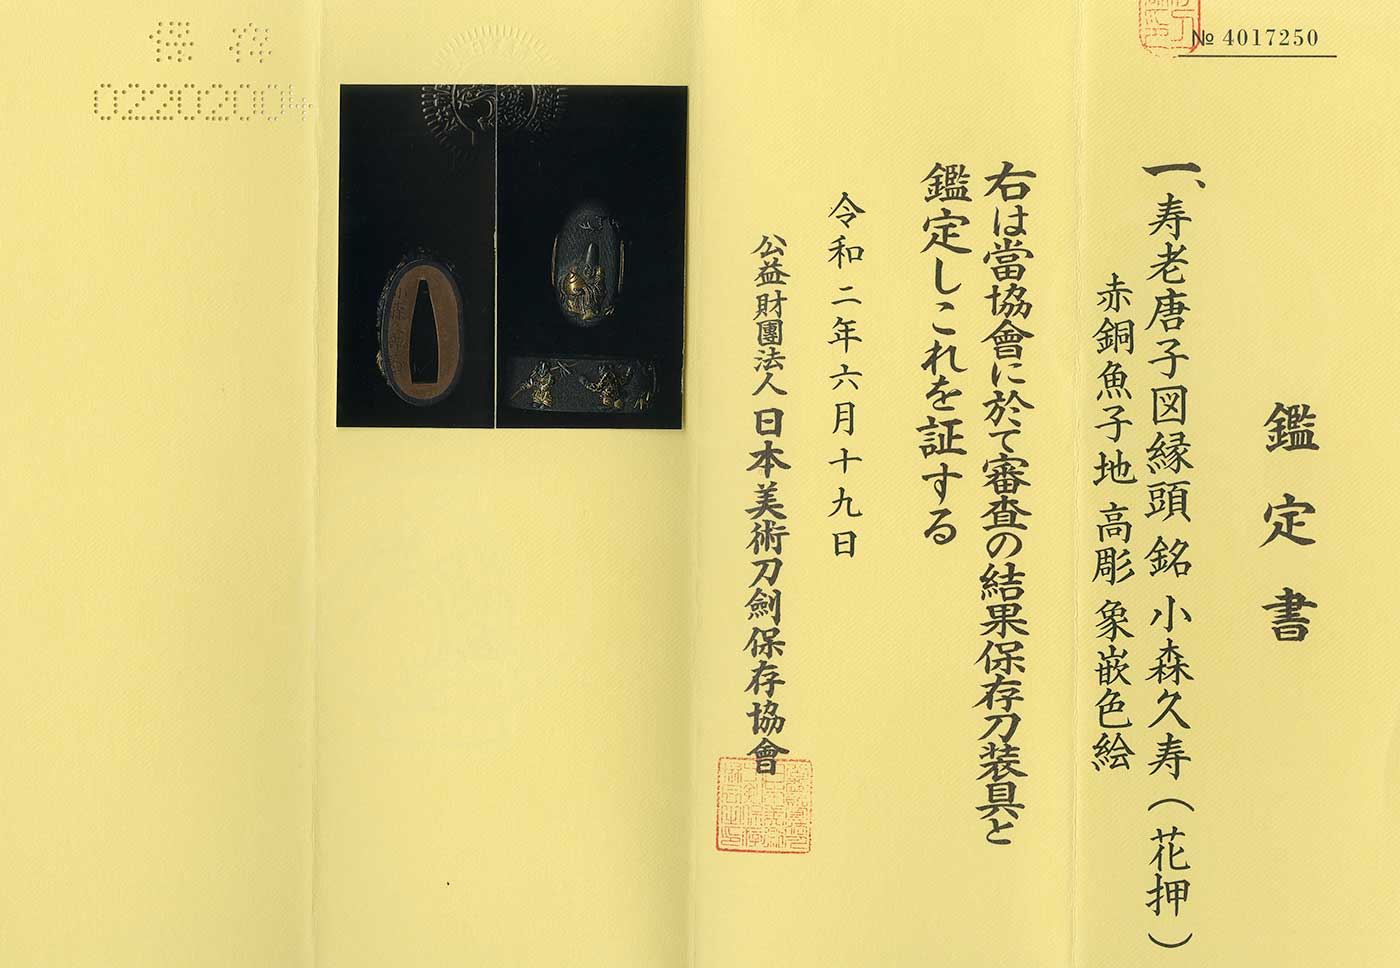 № 4017250
鑑定書
一、寿老唐子図縁頭 銘 小森久寿(花押)
赤銅魚子地 高彫 象嵌色絵
右は當協會に於て審査の結果保存刀装具と
鑑定しこれを証する
令和二年六月十九日
公益財團法人 日本美術刀劍保存協會
保存
02202004